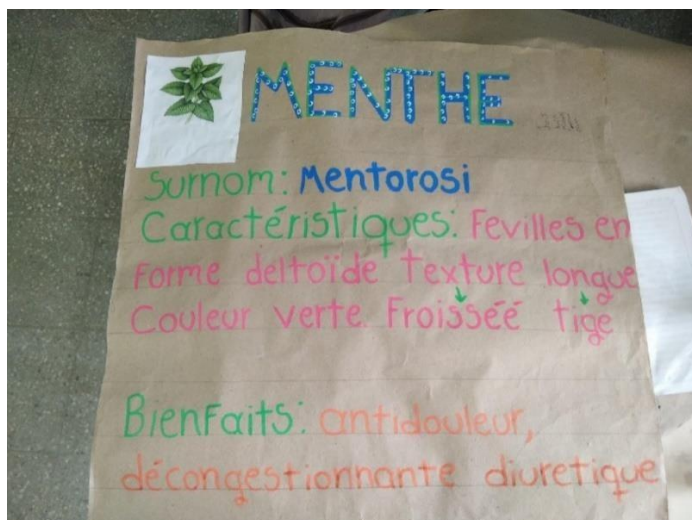 MENTHE
Surnom: Mentorosi
Caractéristiques: Fevilles en
Forme deltoïde Texture longue
Couleur verte. Froisséé tige
BienFaits: antidouleur,
décongestionnante diuretique